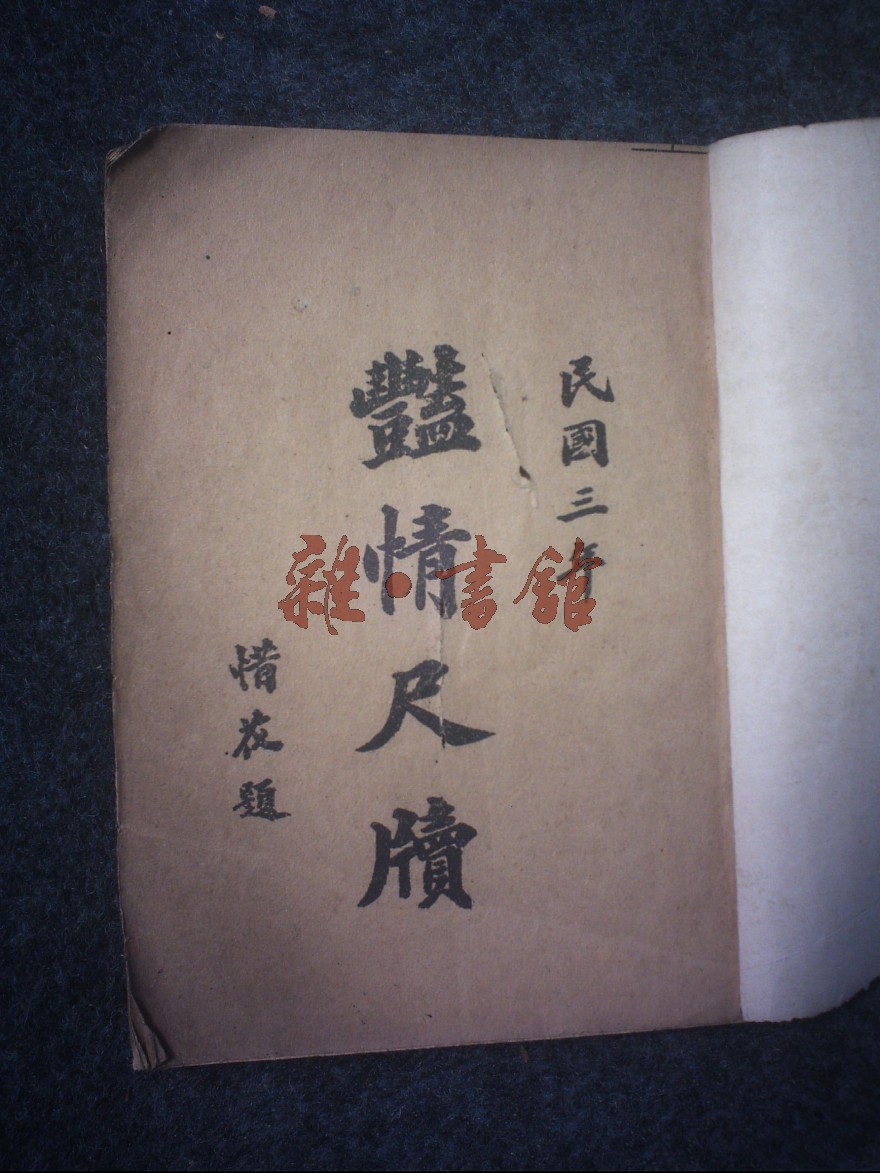 民國三年
豔情尺牘
惜花題
雜·書館